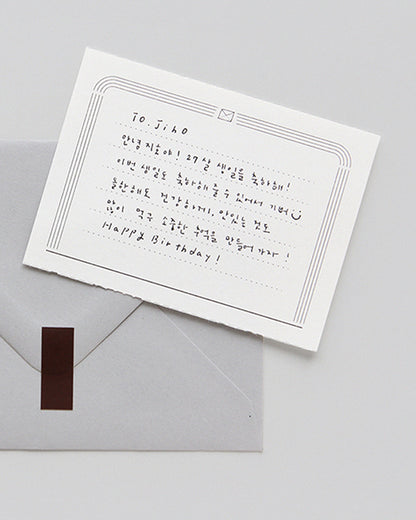 To Jiho
안녕 지호야! 27살 생일을 축하해!
이번 생일도 축하해 줄 수 있어서 기뻐
올한해도 건강하게, 맛있는 것도
많이 먹구 소중한 추억을 만들어 가자!
Happy Birthday!